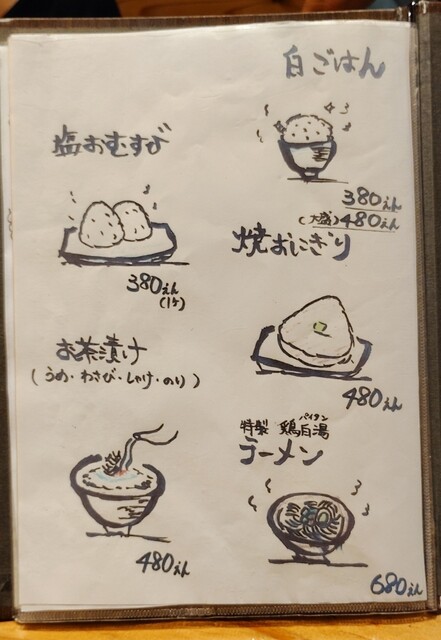 白ごはん
380えん
(大盛)480えん
塩おむすび
380えん
(1ケ)
焼おにぎり
480えん
お茶漬け
(うめ・わさび・しゃけ・のり)
480えん
特製 鶏白湯
パイタン
ラーメン
680えん